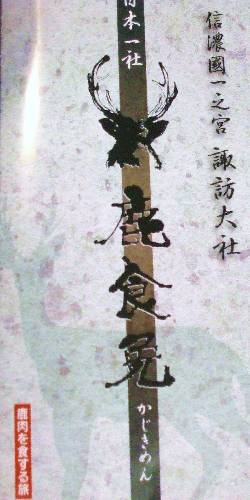 信濃國一之宮 諏訪大社
日本一社
鹿食免
かじきめん
鹿肉を食する旅